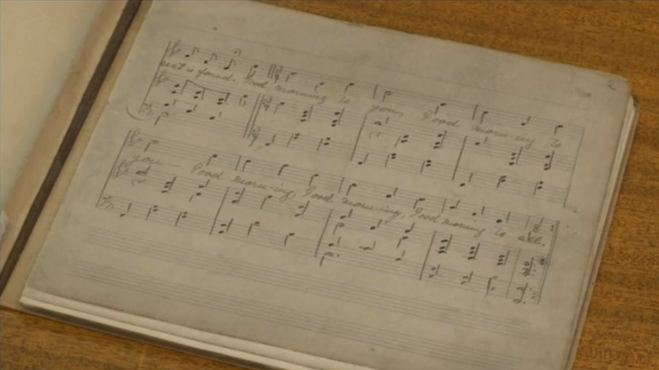 is found. Good morning to you, Good morn-ing to
you Good morn-ing, Good morn-ing, Good morning to all.